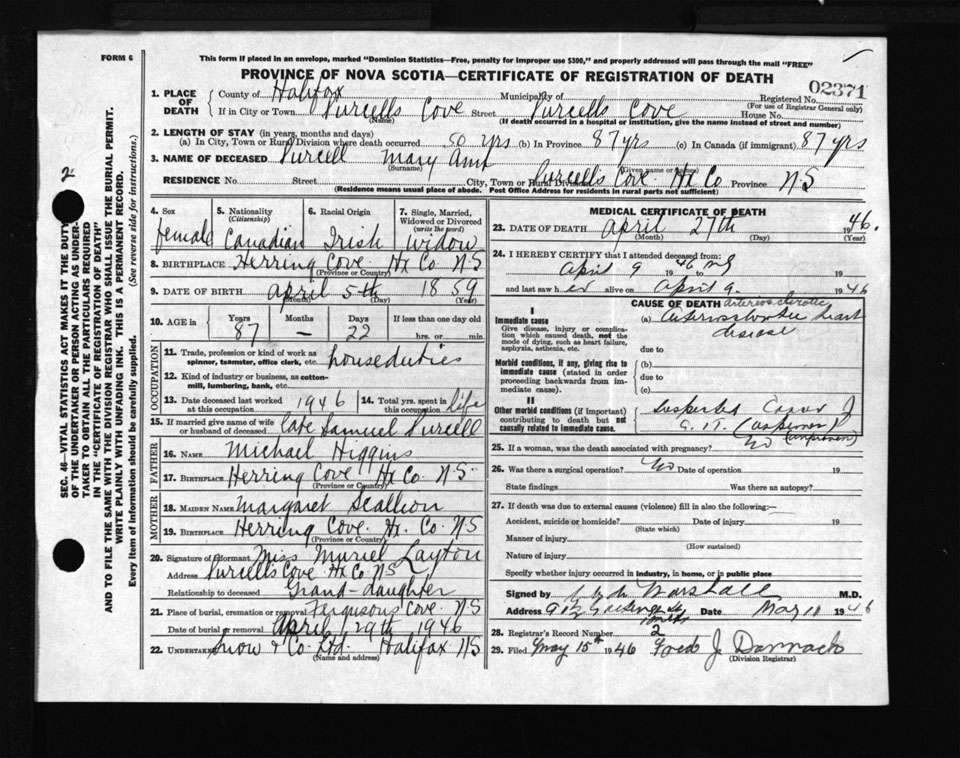 This form if placed in an envelope, marked "Dominion Statistics—Free, penalty for improper use $300," and properly addressed will pass through the mail "FREE"
FORM 6
PROVINCE OF NOVA SCOTIA—CERTIFICATE OF REGISTRATION OF DEATH
02371
1. PLACE OF DEATH
County of Halifax Municipality of Registered No.
(For use of Registrar General only)
If in City or Town Purcells Cove Street Purcells Cove House No.
(Name) (If death occurred in a hospital or institution, give the name instead of street and number)
2. LENGTH OF STAY (in years, months and days)
(a) In City, Town or Rural Division where death occurred 50 yrs (b) In Province 87 yrs (c) In Canada (if immigrant) 87 yrs
3. NAME OF DECEASED Purcell Mary Ann
(Surname) (Given name or names)
RESIDENCE No. Street City, Town or Rural Division Purcells Cove Hx Co Province NS
(Residence means usual place of abode. Post Office Address for residents in rural parts not sufficient)
4. Sex female
5. Nationality (Citizenship) Canadian
6. Racial Origin Irish
7. Single, Married, Widowed or Divorced (write the word) Widow
8. BIRTHPLACE Herring Cove Hx Co NS
(Province or Country)
9. DATE OF BIRTH April 5th 1859
(Month) (Day) (Year)
10. AGE in Years 87 Months — Days 22 If less than one day old
hrs. or min.
OCCUPATION
11. Trade, profession or kind of work as spinner, teamster, office clerk, etc. house duties
12. Kind of industry or business, as cotton-mill, lumbering, bank, etc.
13. Date deceased last worked at this occupation 1946
14. Total yrs. spent in this occupation life
15. If married give name of wife or husband of deceased Late Samuel Purcell
FATHER
16. Name Michael Higgins
17. Birthplace Herring Cove Hx Co NS
(Province or Country)
MOTHER
18. Maiden Name Margaret Scallion
19. Birthplace Herring Cove Hx Co NS
(Province or Country)
20. Signature of informant Miss Muriel Layton
Address Purcells Cove Hx Co NS
Relationship to deceased Grand-daughter
21. Place of burial, cremation or removal Fergusons Cove NS
Date of burial or removal April 29th 1946
22. Undertaker Snow & Co Ltd. Halifax NS
(Name and address)
MEDICAL CERTIFICATE OF DEATH
23. DATE OF DEATH April 27th 1946.
(Month) (Day) (Year)
24. I HEREBY CERTIFY that I attended deceased from:
April 9 1946 to 19
and last saw her alive on April 9. 1946
CAUSE OF DEATH
I
Immediate cause
Give disease, injury or complication which caused death, not the mode of dying, such as heart failure, asphyxia, asthenia, etc.
arteriosclerotic
(a) heart disease
due to
Morbid conditions, if any, giving rise to immediate cause (stated in order proceeding backwards from immediate cause).
(b)
due to
(c)
II
Other morbid conditions (if important) contributing to death but not causally related to immediate cause.
Suspected
G.I.T. (unproven)
25. If a woman, was the death associated with pregnancy? No
26. Was there a surgical operation? No Date of operation 19
State findings Was there an autopsy?
27. If death was due to external causes (violence) fill in also the following:—
Accident, suicide or homicide? Date of injury 19
(State which)
Manner of injury
(How sustained)
Nature of injury
Specify whether injury occurred in industry, in home, or in public place
Signed by Clyde Marshall M.D.
Address Date May 10 1946
28. Registrar's Record Number 2
29. Filed May 15th 1946 Fred J
(Division Registrar)
2
SEC. 46—VITAL STATISTICS ACT MAKES IT THE DUTY
OF THE UNDERTAKER OR PERSON ACTING AS UNDER-
TAKER TO OBTAIN ALL THE PARTICULARS REQUIRED
IN THE "CERTIFICATE OF REGISTRATION OF DEATH"
AND TO FILE THE SAME WITH THE DIVISION REGISTRAR WHO SHALL ISSUE THE BURIAL PERMIT.
WRITE PLAINLY WITH UNFADING INK. THIS IS A PERMANENT RECORD.
Every item of information should be carefully supplied. (See reverse side for instructions.)